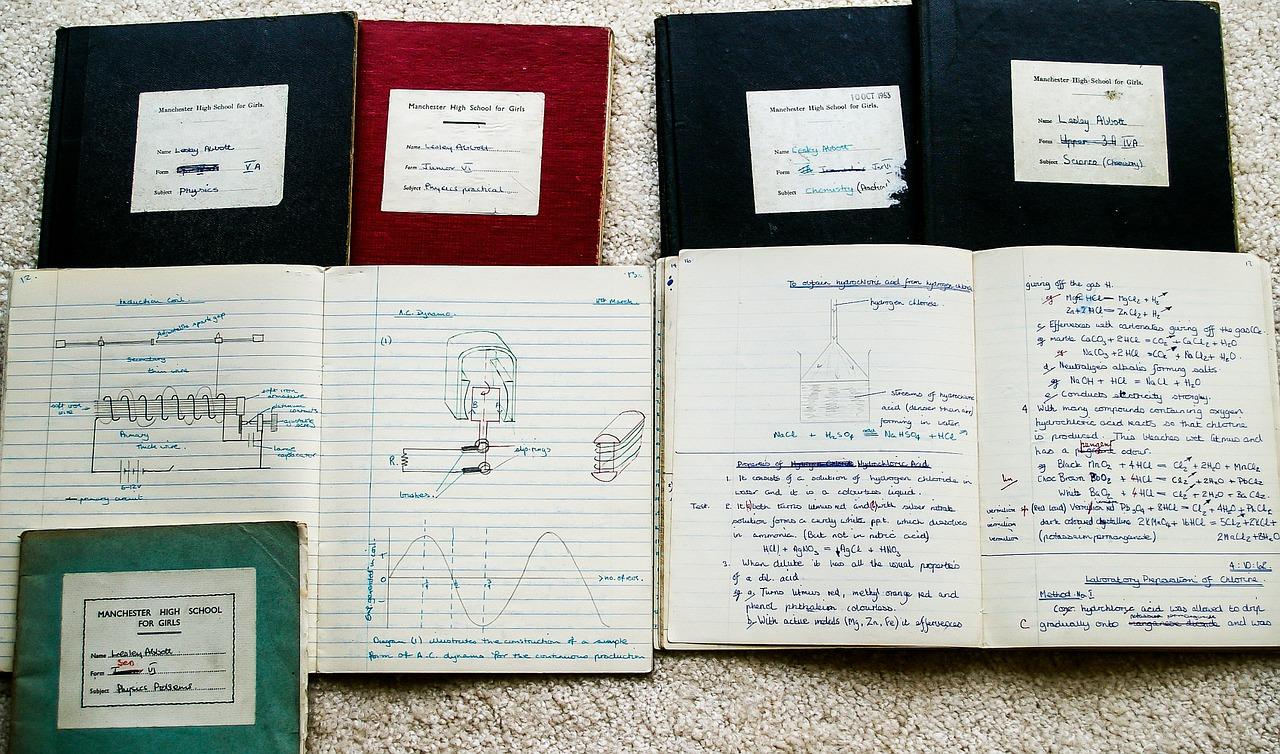 Manchester High School for Girls.
Name Lesley Abbott
Form VA
Subject Physics
Manchester High School for Girls
Name Lesley Abbott
Form Junior VI
Subject Physics practical
10 OCT 1963
Manchester High School for Girls.
Name Lesley Abbott
Form
Subject Chemistry
Manchester High School for Girls.
Name Lesley Abbott
Form Upper 3 IVA
Subject Science (Chemistry)
12.
Induction Coil.
Adjustable spark gap
Secondary
thin wire
soft iron
armature
soft iron
wire
platinum
contacts
Primary
thick wire.
large
capacitor
6-12v
primary circuit
13.
8th March
A.C. Dynamo.
(1)
R.
slip-rings
brushes
0
no. of revs.
Diagram (1) illustrates the construction of a simple
form of A.C. dynamo for the continuous production
MANCHESTER HIGH SCHOOL
FOR GIRLS
Name Lesley Abbott
Sen
Form VI
Subject Physics Problems
16
To obtain hydrochloric acid from hydrogen chloride
hydrogen chloride.
streams of hydrochloric
acid (denser than air)
forming in water.
NaCl + H₂SO₄ = NaHSO₄ + HCl
Properties of Hydrochloric Acid
1. It consists of a solution of hydrogen chloride in
water and it is a colourless liquid.
Test. 2. It both turns litmus red and with silver nitrate
solution forms a curdy white ppt. which dissolves
in ammonia. (But not in nitric acid)
HCl + AgNO₃ = AgCl + HNO₃
3. When dilute it has all the usual properties
of a dil. acid.
eg a, Turns litmus red, methyl orange red and
phenol phthalein colourless.
b, With active metals (Mg, Zn, Fe) it effervesces
17
giving off the gas H.
eg Mg + HCl = MgCl₂ + H₂
Zn + 2HCl = ZnCl₂ + H₂
c, Effervesces with carbonates giving off the gas CO₂
eg marble CaCO₃ + 2HCl = CO₂ + CaCl₂ + H₂O
d, Neutralizes alkalis forming salts.
eg NaOH + HCl = NaCl + H₂O
e, Conducts electricity strongly.
4 With many compounds containing oxygen
hydrochloric acid reacts so that chlorine
is produced. This bleaches wet litmus and
has a pungent odour.
eg Black MnO₂ + 4HCl = Cl₂ + 2H₂O + MnCl₂
Choc Brown PbO₂ + 4HCl = Cl₂ + 2H₂O + PbCl₂
White BaO₂ + 4HCl = Cl₂ + 2H₂O + BaCl₂
(Red Lead) Pb₃O₄ + 8HCl = Cl₂ + 4H₂O + PbCl₂
vermilion dark coloured crystalline 2KMnO₄ + 16HCl = 5Cl₂ + 2KCl +
vermilion (potassium permanganate)
4:10:62
Laboratory Preparation of Chlorine.
Method No I
Conc hydrochloric acid was allowed to drip
C gradually onto manganese dioxide and was